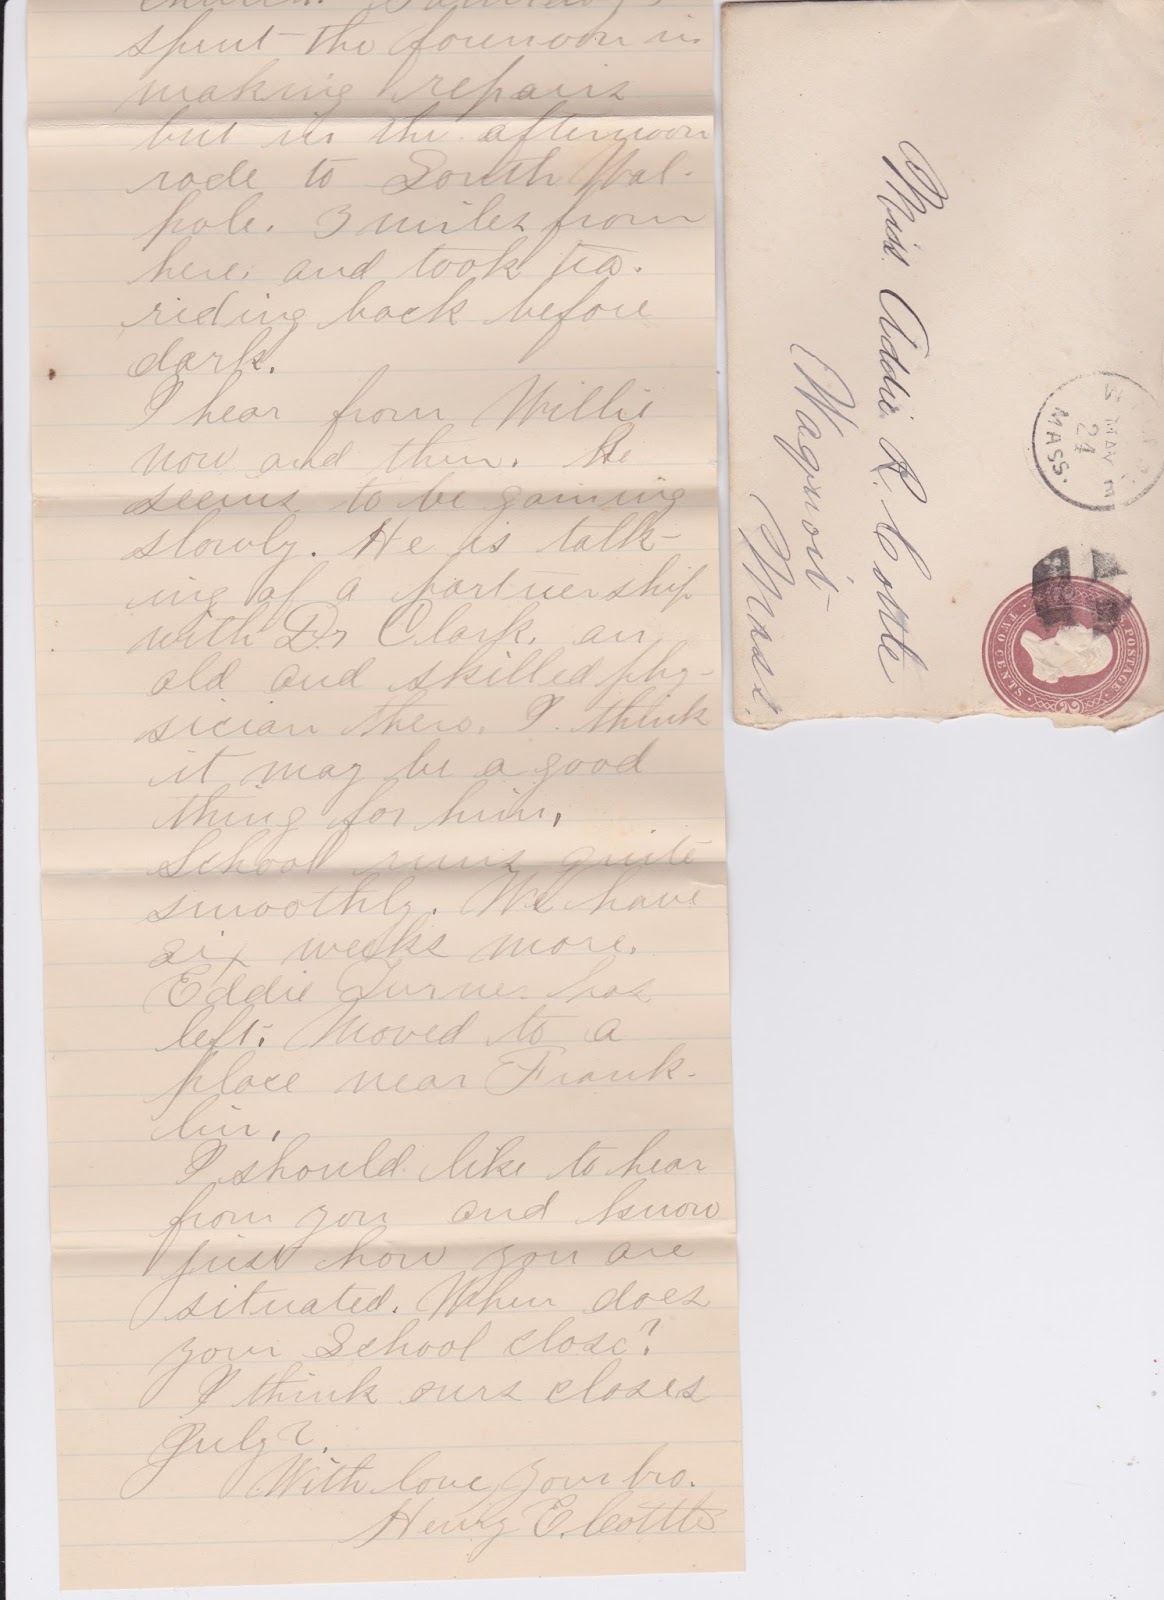 church. Saturday I
spent the forenoon in
making repairs
but in the afternoon
rode to South Wal-
pole. 3 miles from
here, and took tea.
riding back before
dark.
I hear from Willie
now and then. He
seems to be gaining
slowly. He is talk-
ing of a partnership
with Dr Clark, an
old and skilled phy-
sician there. I think
it may be a good
thing for him.
School runs quite
smoothly. We have
six weeks more.
Eddie Turner has
left. Moved to a
place near Frank-
lin.
I should like to hear
from you and know
just how you are
situated. When does
your School close?
I think ours closes
July 2.
With love, your bro.
Henry E. Cottle
Miss. Addie R. Cottle
Waquoit
Mass.
MAY
24
MASS.
U.S. POSTAGE
TWO CENTS
2